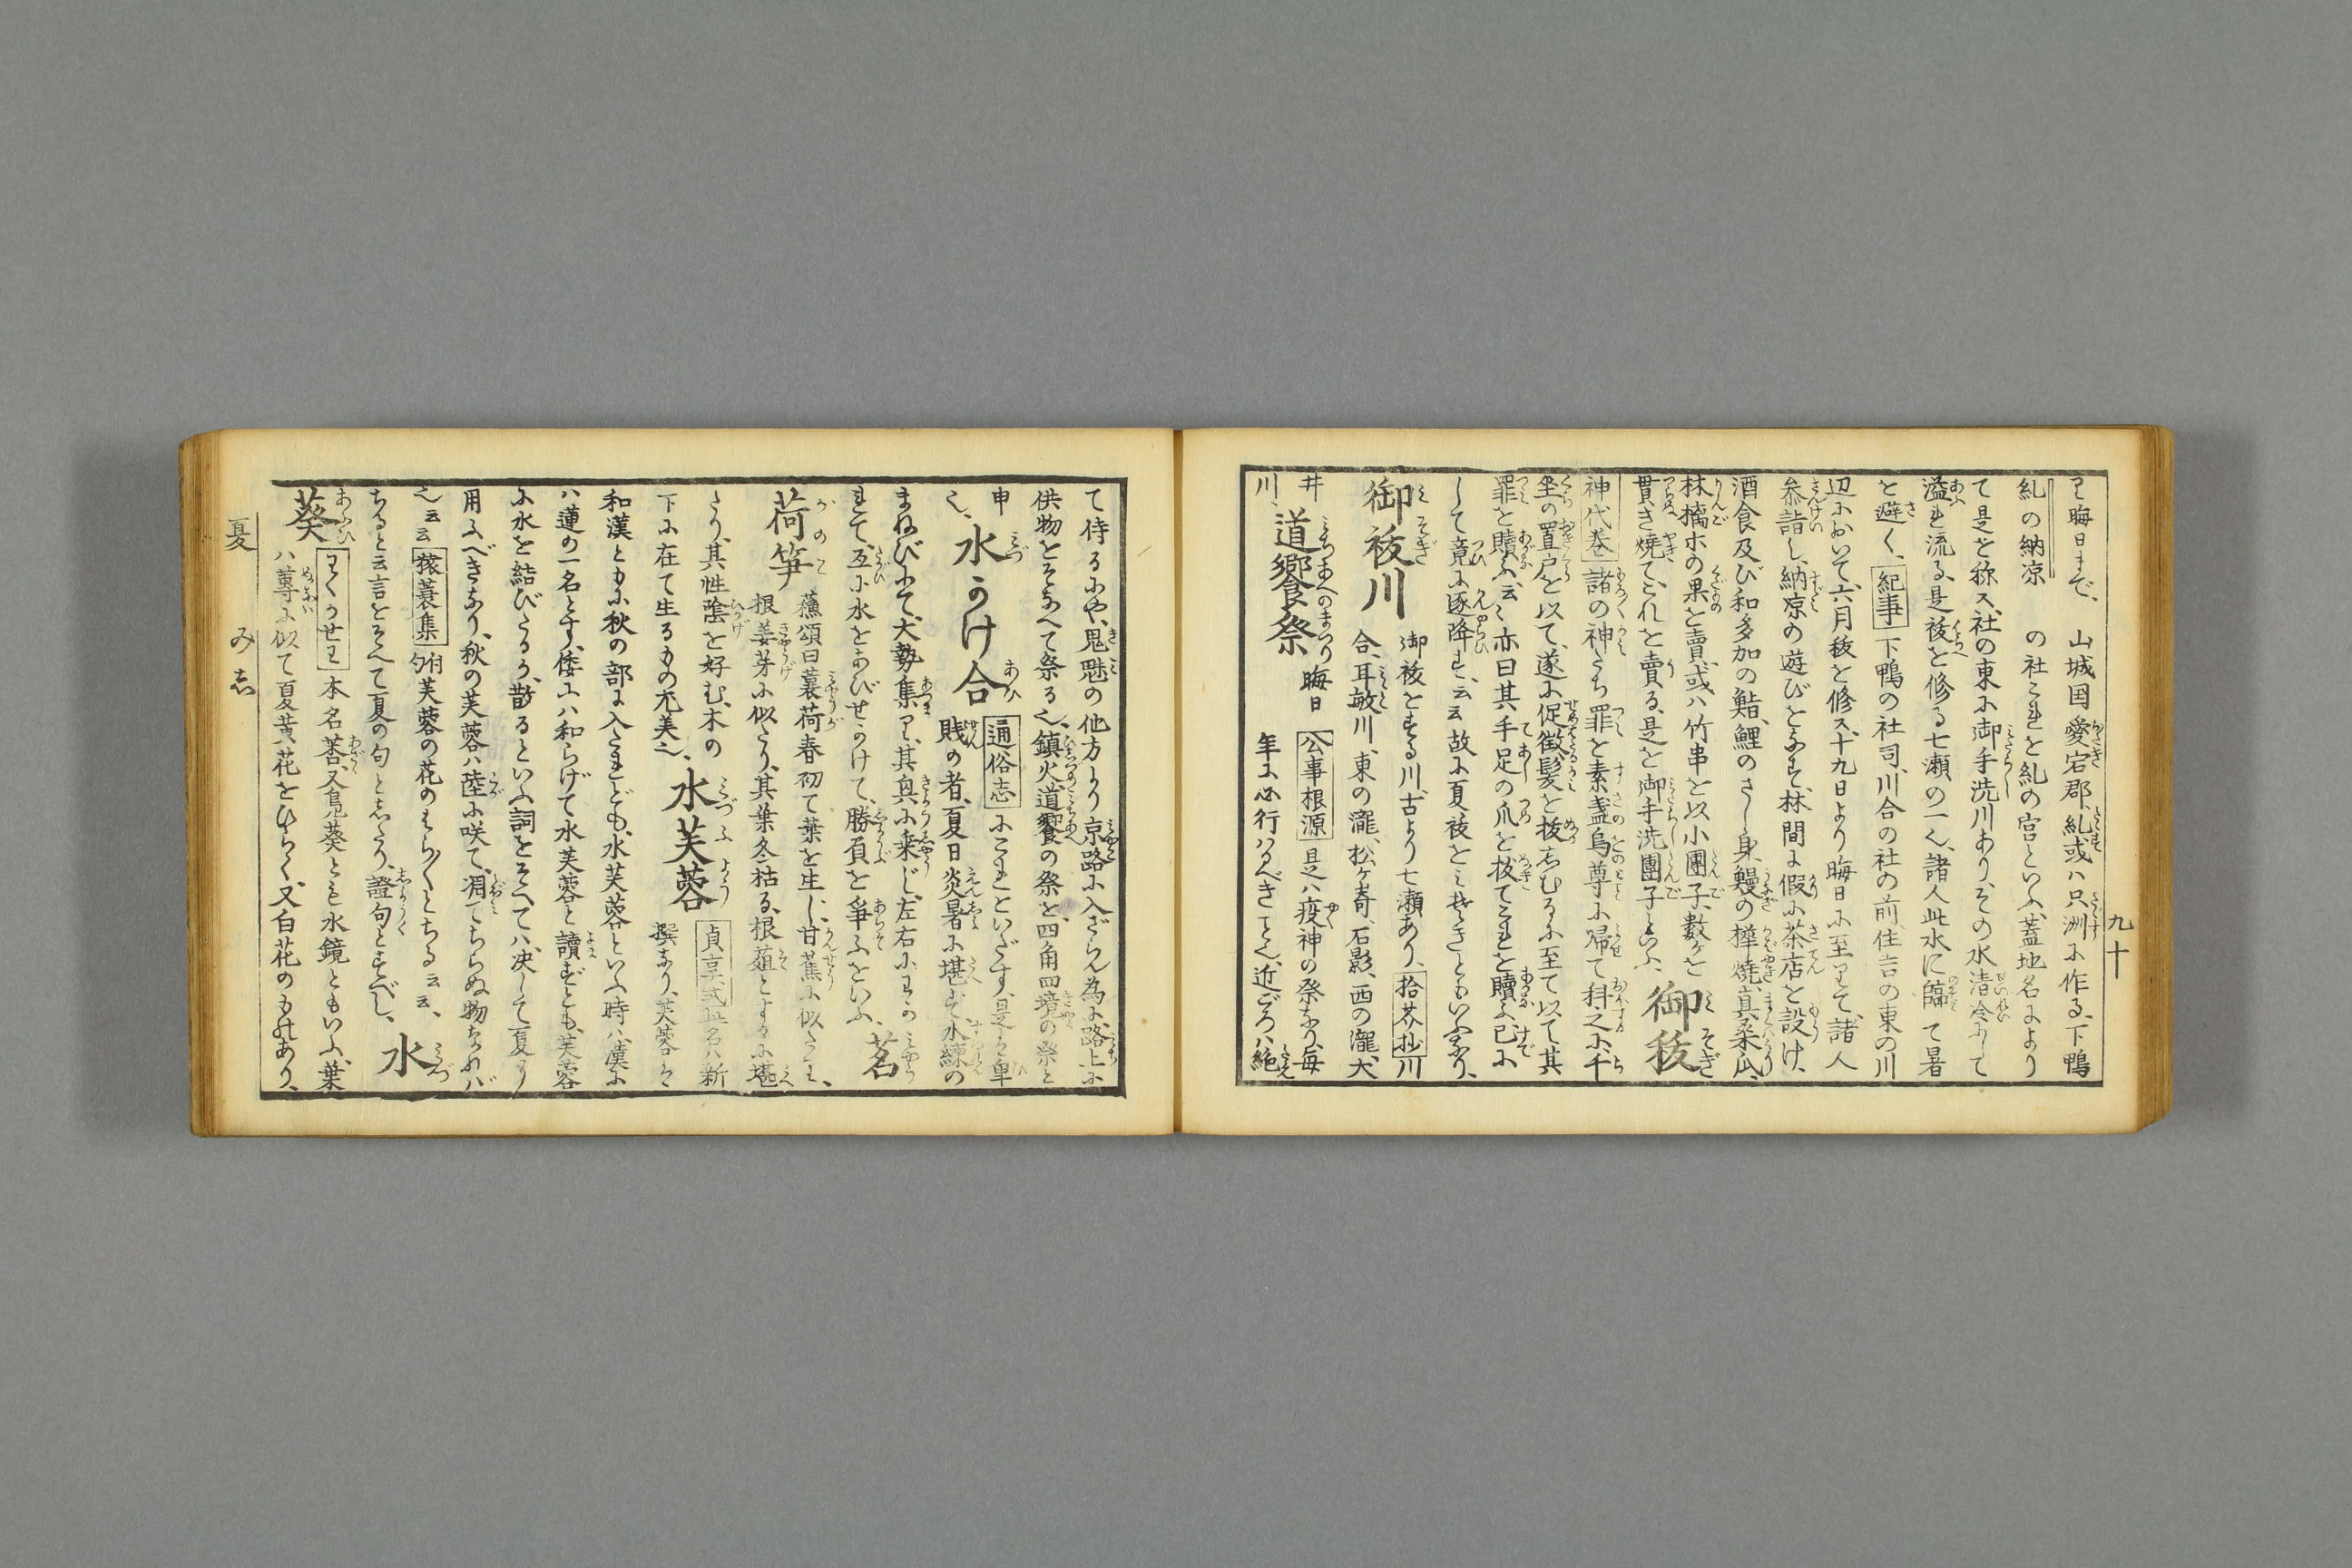 九十
り晦日まで、山城国愛宕郡糺或ハ只洲に作る、下鴨
糺の納凉
の社これを糺の宮といふ、蓋地名により
て是を称ス、社の東に御手洗川あり、その水清冷にして
溢れ流る、是祓を修る七瀬の一也、諸人此水に臨て暑
を避く、紀事下鴨の社司、川合の社の前住吉の東の川
辺において、六月秡を修ス、十九日より晦日に至りて、諸人
参詣し、納凉の遊びをなす、林間に假に茶店を設け、
酒食及び和多加の鮨、鯉のさし身、鰻の樺焼、真桑瓜、
林檎ホの果を賣、或ハ竹串を以小團子、数ケを
貫き焼て、これを賣る、是を御手洗團子といふ、
御秡
神代巻諸の神たち罪を素盞烏尊に帰て科之に、千
坐の置戸を以て、遂に促徴、髪を抜しむるに至て以て其
罪を贖ふ、云々亦曰其手足の爪を抜てこれを贖ふ、已に
して竟に逐降す、云云故に夏祓をみそぎともいふなり、
御祓川
御祓をする川、古より七瀬あり、拾芥抄川
合、耳敏川、東の瀧、松ヶ﨑、石影、西の瀧、大
井
川、
道饗祭
晦日公事根源是ハ疫神の祭なり、毎
年に必行はるべきこと也、近ごろハ絶
て侍るにや、鬼魅の他方より京路に入ざらん為に、路上に
供物をそなへて祭る也、鎮火、道饗の祭を、四角四境の祭と
申
也、
水かけ合
通俗志にこれをいだす、是は卑
賎の者、夏日炎暑に堪ず、水練の
まねびにて、大勢集り、其興に乗じ、左右にわか
れて、互に水をあびせかけて、勝負を争ふをいふ、茗
荷笋
蘓頌曰蘘荷春初て葉を生じ、甘蕉に似たり、
根姜芽に似たり、其葉冬枯る、根葅とするに堪
たり、其性陰を好む、木の
下に在て生るもの尤美也、
水芙蓉
貞享式此名ハ新
撰なり、芙蓉は
和漢ともに秋の部に入たれども、水芙蓉といふ時ハ、漢に
ハ蓮の一名とす、倭にハ和らげて水芙蓉と讀ずとも、芙蓉
に水を結びたるか、散るといふ詞をそへてハ、决して夏に
用ふべきなり、秋の芙蓉ハ陸に咲て、凋てちらぬ物なれバ
也云云猿蓑集附句芙蓉の花のはら〳〵とちる云云、
ちると云言をそへて夏の句としたり、證句とすべし、水
葵
わくかせわ本名荅、又鳬葵とも水鏡ともいふ、葉
ハ蓴に似て夏黄花をひらく、又白花のものあり、
夏　み　し